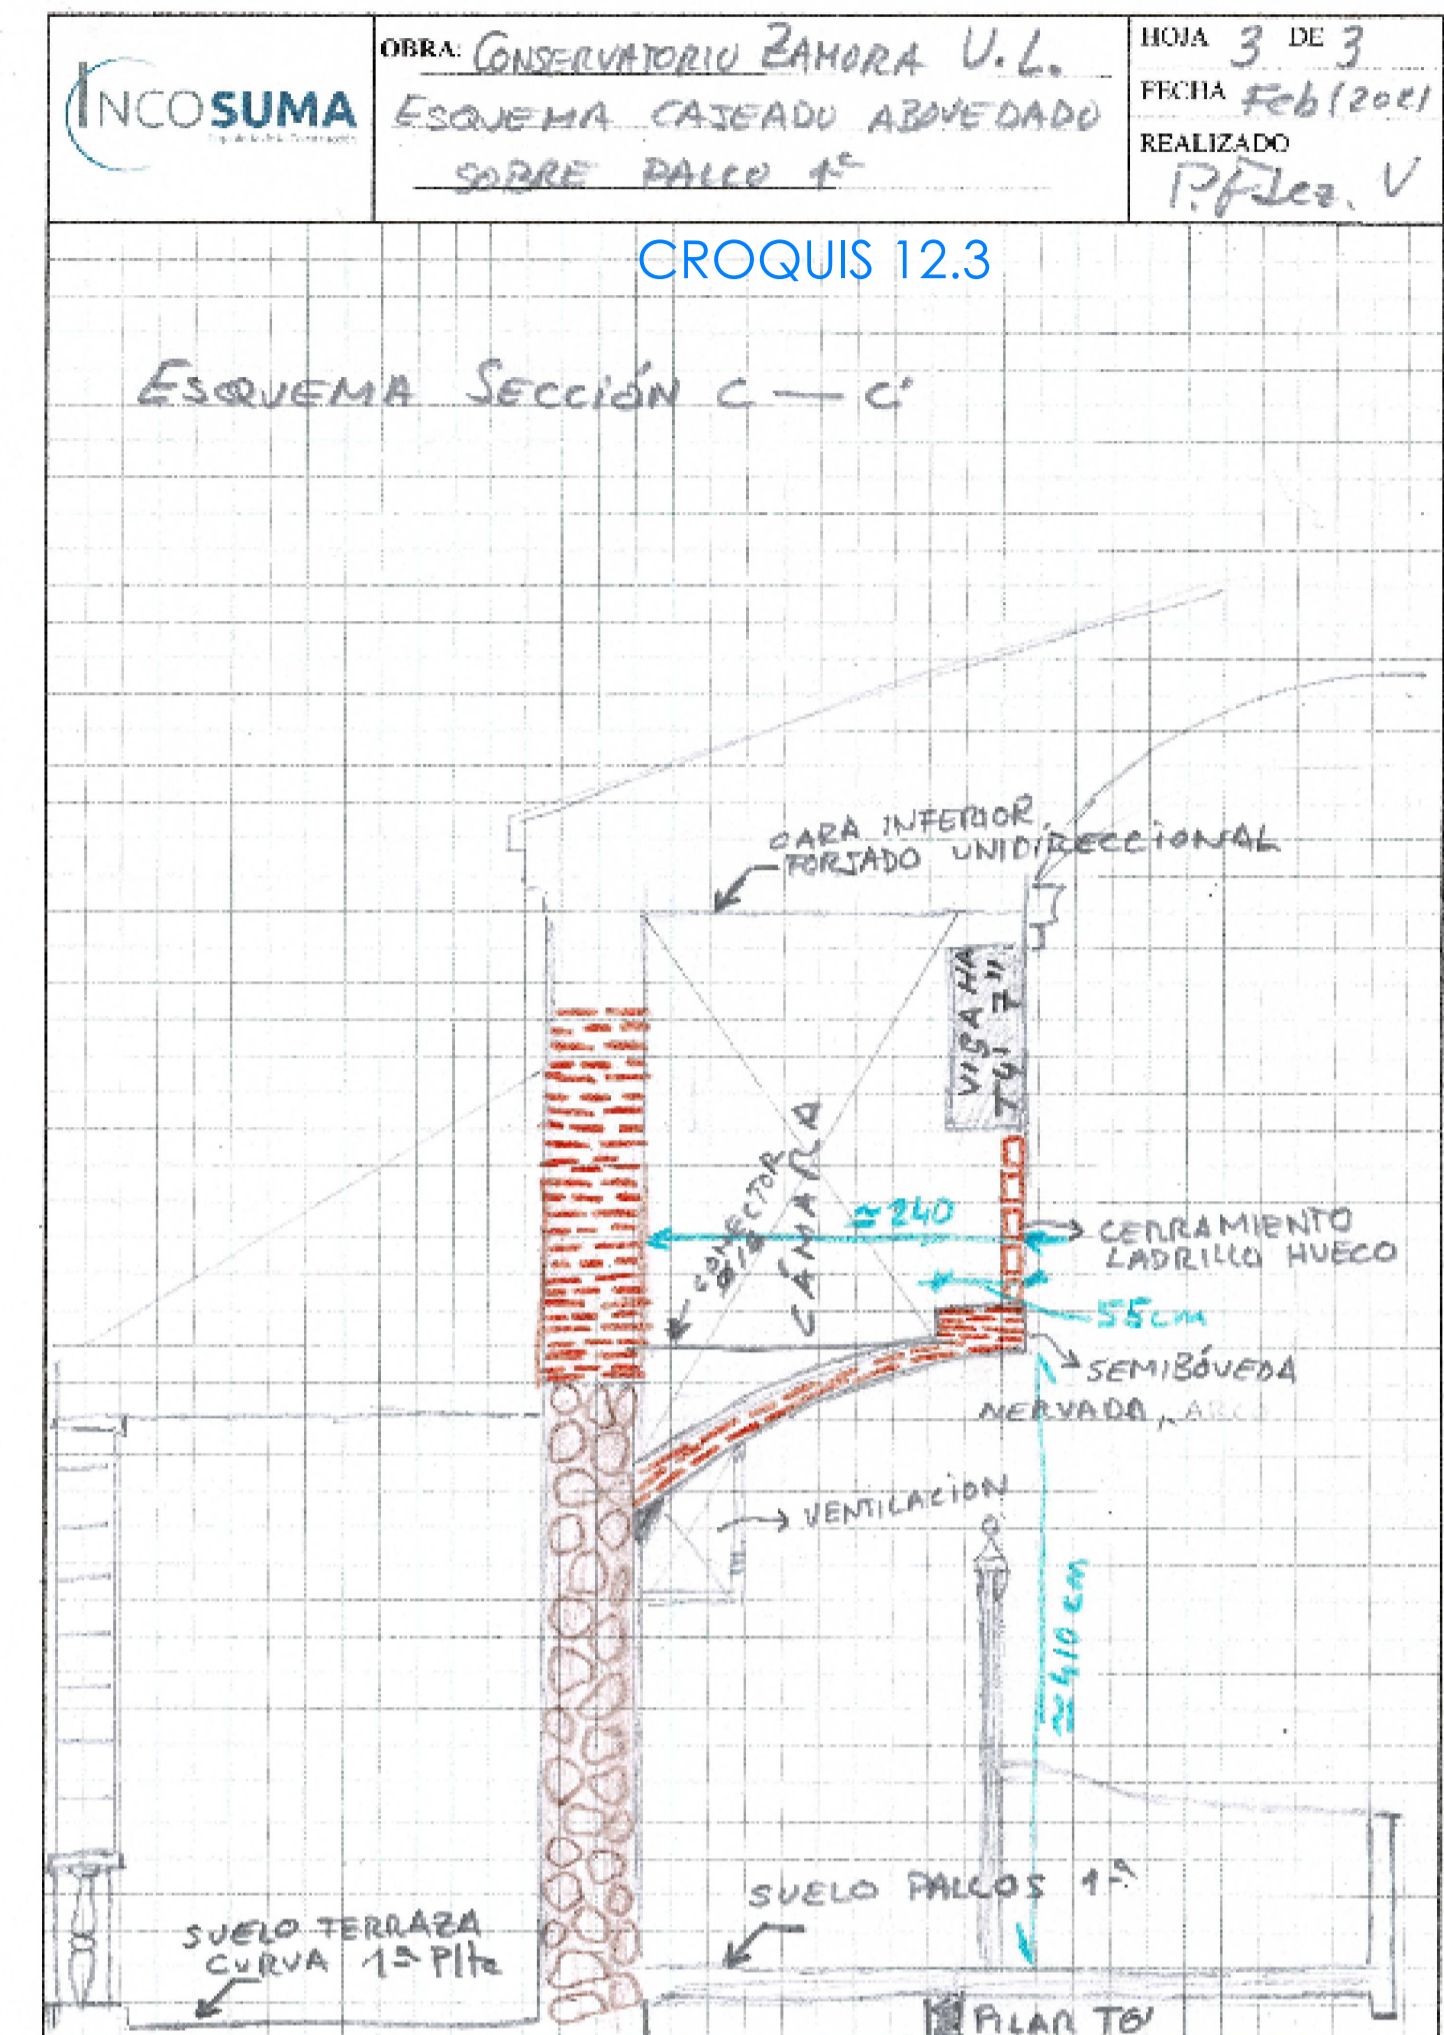 INCOSUMA
OBRA: CONSERVATORIO ZAMORA U.L.
ESQUEMA CAJEADO ABOVEDADO
SOBRE PALCO 1º
HOJA 3 DE 3
FECHA Feb/2021
REALIZADO
CROQUIS 12.3
ESQUEMA SECCIÓN C — C'
CARA INFERIOR
FORJADO UNIDIRECCIONAL
VIGA HA
CONECTOR
CÁMARA
≃240
CERRAMIENTO
LADRILLO HUECO
55cm
SEMIBÓVEDA
NERVADA, ARCO
VENTILACION
≃410 cm
SUELO PALCOS 1ª
SUELO TERRAZA
CURVA 1ª Plta
PILAR